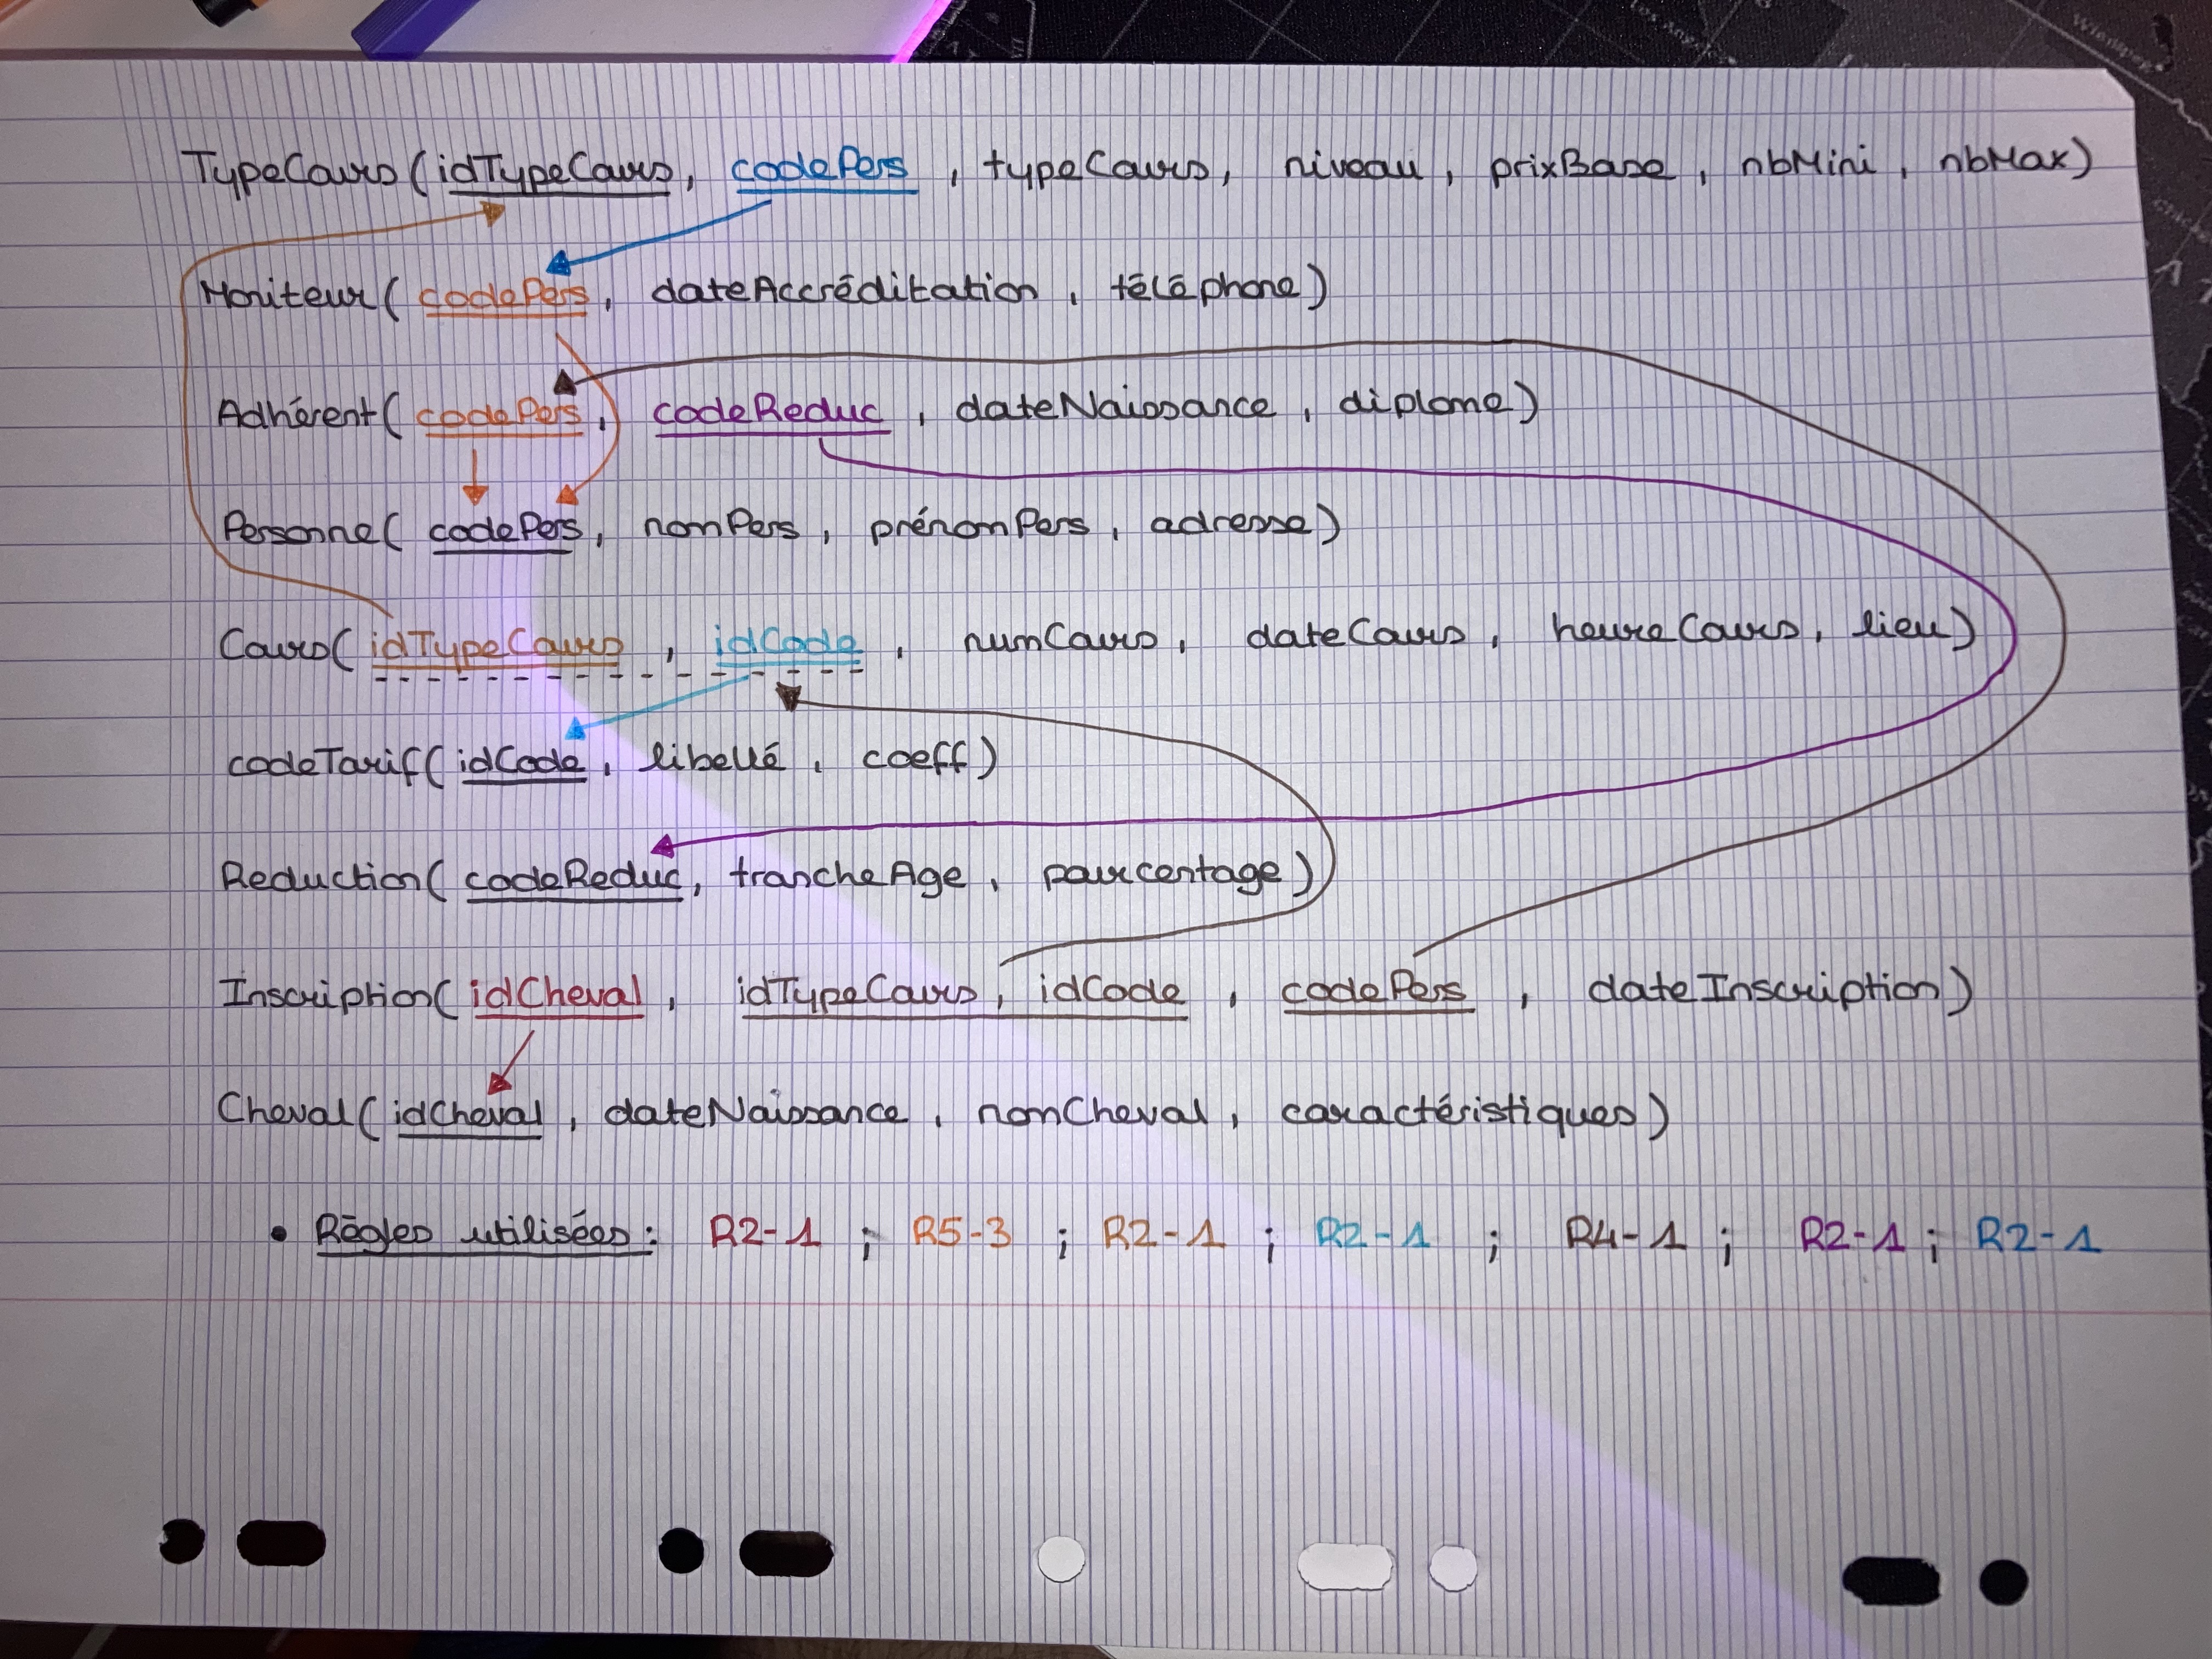 TypeCours(idTypeCours, codePers, typeCours, niveau, prixBase, nbMini, nbMax)
Moniteur(codePers, dateAccréditation, téléphone)
Adhérent(codePers, codeReduc, dateNaissance, diplome)
Personne(codePers, nomPers, prénomPers, adresse)
Cours(idTypeCours, idCode, numCours, dateCours, heureCours, lieu)
codeTarif(idCode, libellé, coeff)
Reduction(codeReduc, trancheAge, pourcentage)
Inscription(idCheval, idTypeCours, idCode, codePers, dateInscription)
Cheval(idCheval, dateNaissance, nomCheval, caractéristiques)
• Règles utilisées: R2-1 ; R5-3 ; R2-1 ; R2-1 ; R4-1 ; R2-1 ; R2-1